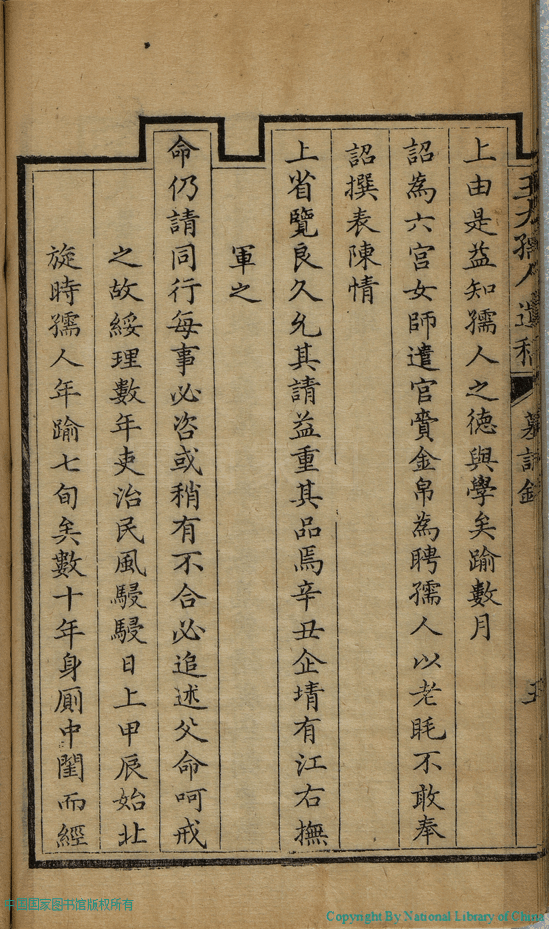 王大孺人遺稿 墓誌銘 五
上由是益知孺人之德與學矣踰數月
詔為六宮女師遣官賫金帛為聘孺人以老眊不敢奉
詔撰表陳情
上省覽良久允其請益重其品焉辛丑企堉有江右撫
軍之
命仍請同行每事必咨或稍有不合必追述父命呵戒
之故綏理數年吏治民風駸駸日上甲辰始北
旋時孺人年踰七旬矣數十年身厠中閨而經
中国国家图书馆版权所有
Copyright By National Library of China